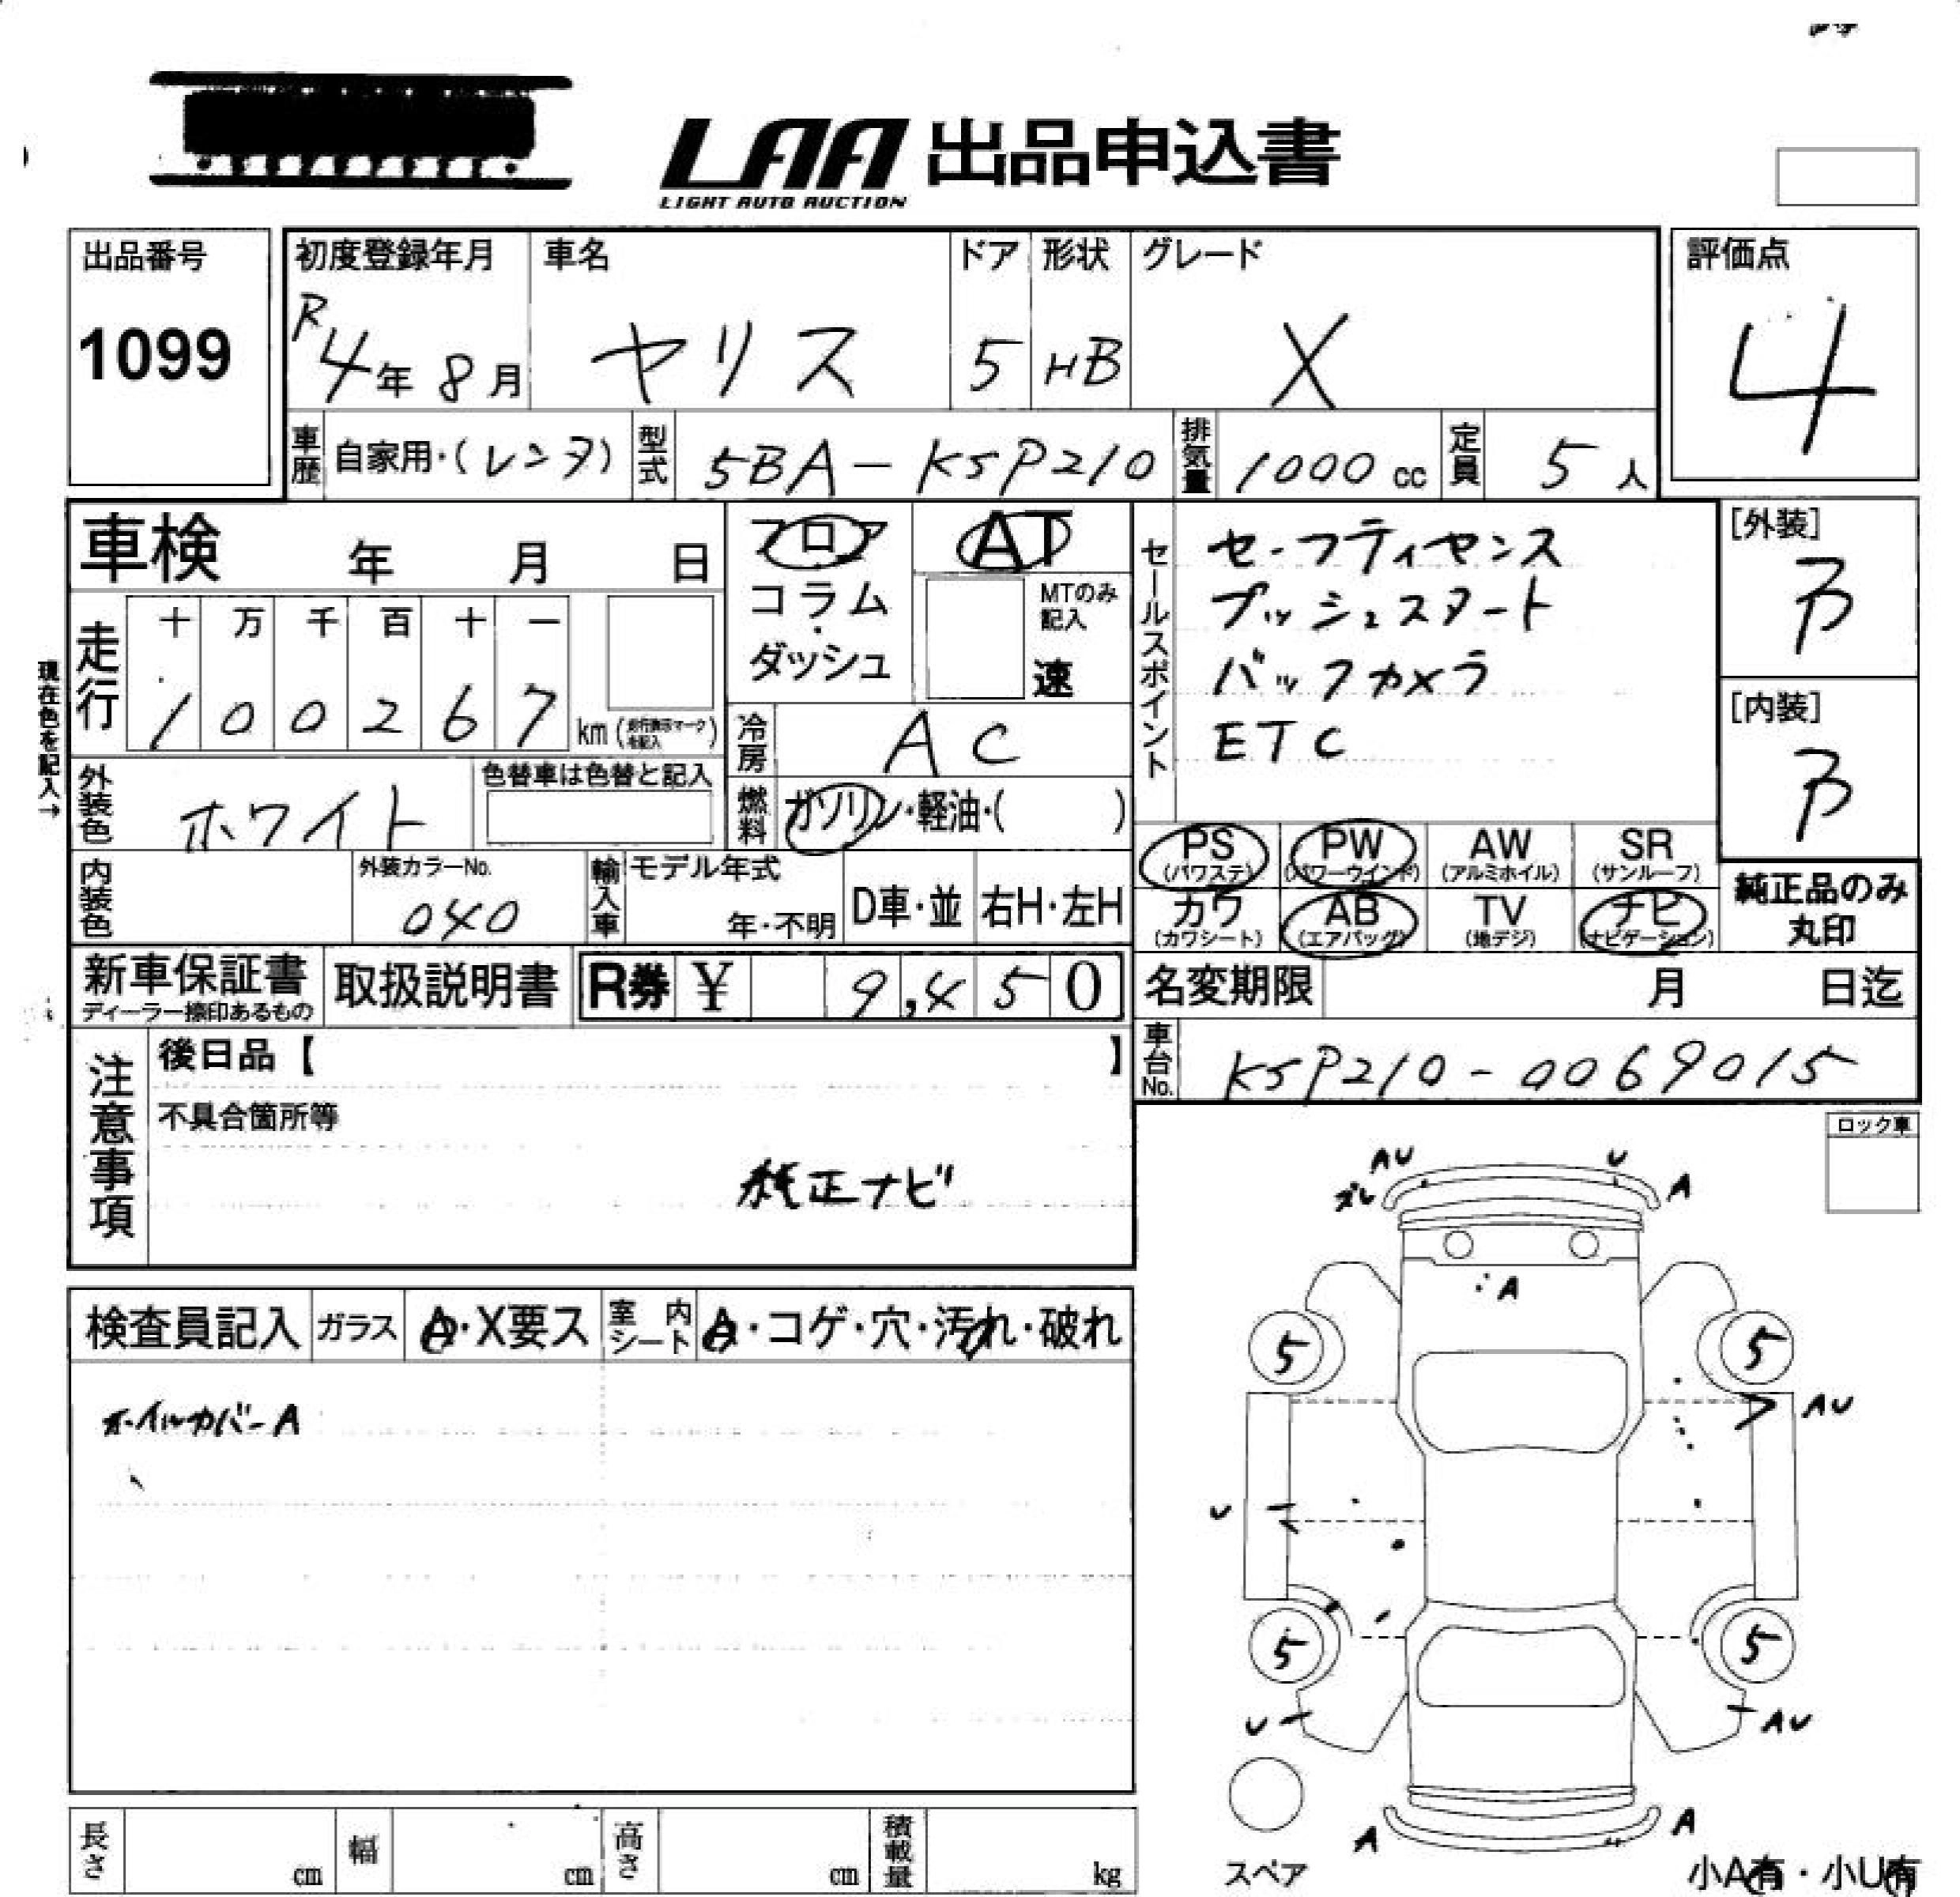 LAA 出品申込書
LIGHT AUTO AUCTION
出品番号
1099
初度登録年月
R4年 8月
車名
ヤリス
ドア
5
形状
HB
グレード
X
評価点
4
車歴 自家用・(レンタ)
型式 5BA-KSP210
排気量 1000 cc
定員 5人
車検 年 月 日
フロア
コラム
・
ダッシュ
AT
MTのみ
記入
速
セールスポイント
セーフティセンス
プッシュスタート
バックカメラ
ETC
[外装]
B
[内装]
B
現在色を記入→
走行
十 万 千 百 十 一
1 0 0 2 6 7 km
冷房 AC
外装色 ホワイト
色替車は色替と記入
燃料 ガソリン・軽油・( )
PS
(パワステ)
PW
(パワーウインド)
AW
(アルミホイル)
SR
(サンルーフ)
カワ
(カワシート)
AB
(エアバッグ)
TV
(地デジ)
ナビ
(ナビゲーション)
純正品のみ
丸印
内装色
外装カラーNo.
040
輸入車
モデル年式
年・不明
D車・並
右H・左H
新車保証書
ディーラー捺印あるもの
取扱説明書
R券 ¥ 9,450
名変期限 月 日迄
車台No. KSP210-0069015
注意事項
後日品【 】
不具合箇所等
純正ナビ
ロック車
検査員記入
ガラス A・X要ス
室内シート A・コゲ・穴・汚れ・破れ
ホイルカバーA
AU
U
ズレ
A
A
5
5
AU
U
5
5
U
AU
A
A
スペア
小A有・小U有
長さ cm
幅 cm
高さ cm
積載量 kg